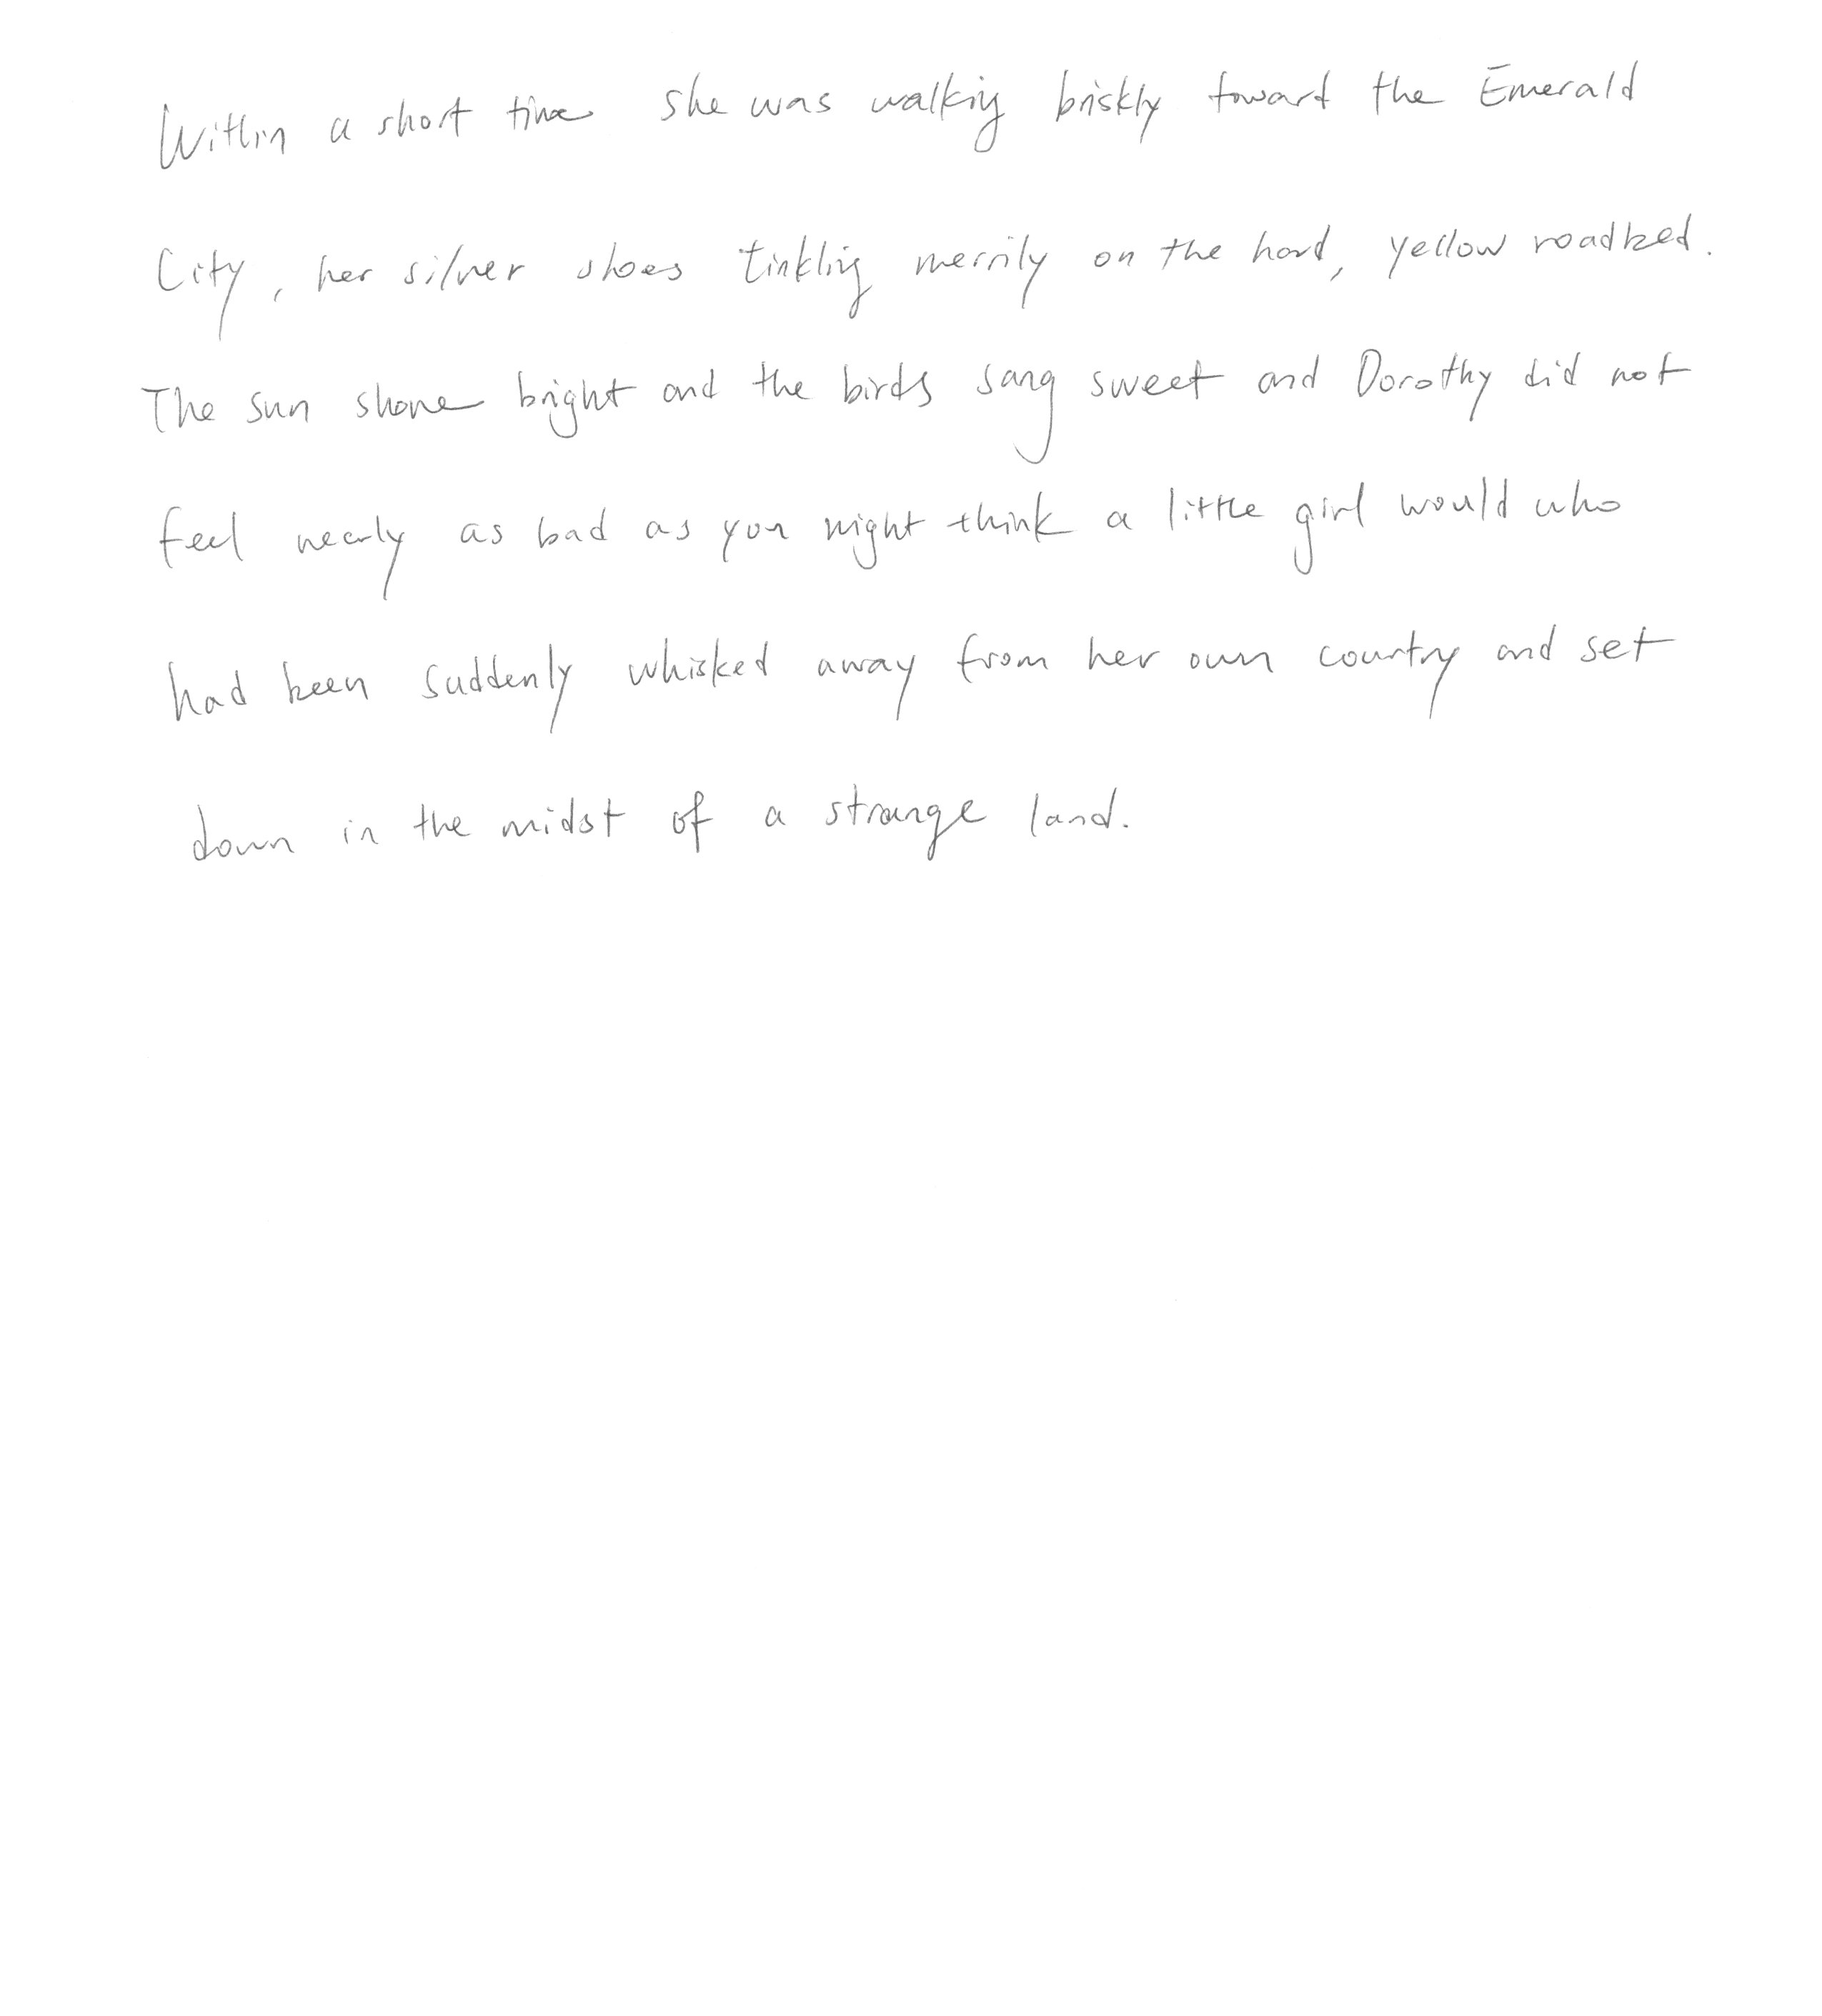 Within a short time she was walking briskly toward the Emerald
City, her silver shoes tinkling merrily on the hard, yellow roadbed.
The sun shone bright and the birds sang sweet and Dorothy did not
feel nearly as bad as you might think a little girl would who
had been suddenly whisked away from her own country and set
down in the midst of a strange land.